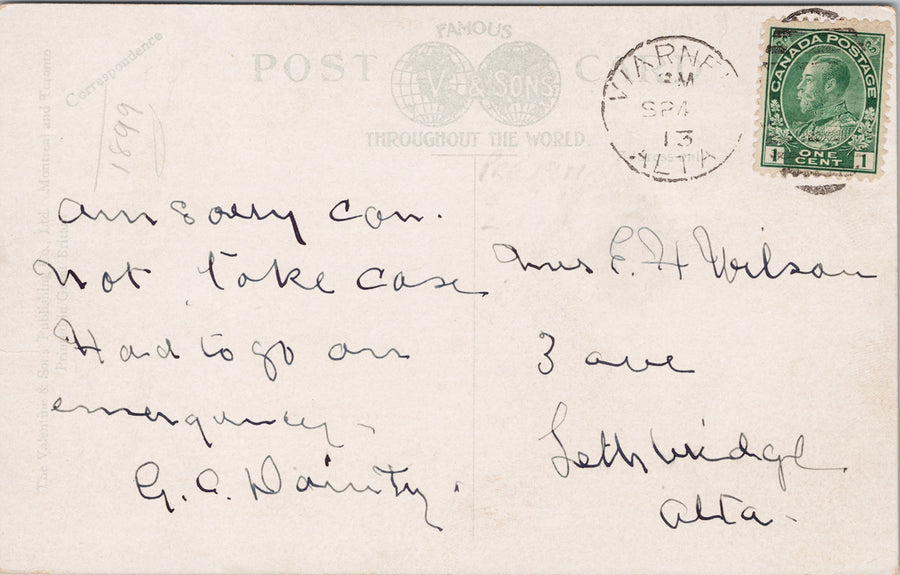 FAMOUS
POST CARD
V. & SONS
THROUGHOUT THE WORLD.
Correspondence
1899
The Valentine & Sons' Publishing Co., Ltd. Montreal and Toronto
Printed in Great Britain
SP 4
13
ALTA
CANADA POSTAGE
1 ONE CENT 1
Am sorry can.
not take case
Had to go on
emergency -
G. A. Dainty.
Mrs E. H Wilson
3 ave
Lethbridge
Alta -